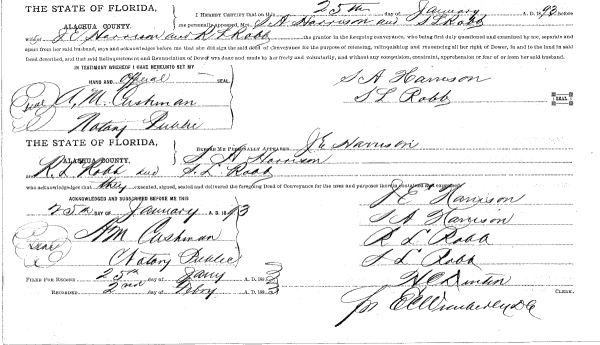 THE STATE OF FLORIDA,
ALACHUA COUNTY.
I HEREBY CERTIFY that on this 25th day of January A. D. 1893 before
me personally appeared Mrs. S. A. Harrison and S L Robb
wives J. E. Harrison and R L Robb the grantor in the foregoing conveyance, who being first duly questioned and examined by me, separate and
apart from her said husband, says and acknowledges before me that she did sign the said deed of Conveyance for the purpose of releasing, relinquishing and renouncing all her right of Dower, in and to the land in said
Deed described, and that said Relinquishment and Renunciation of Dower was done and made by her freely and voluntarily, and without any compulsion, constraint, apprehension or fear of or from her said husband.
IN TESTIMONY WHEREOF I HAVE HEREUNTO SET MY
HAND AND official SEAL
Seal A. M. Cushman
Notary Public
S A Harrison
S L Robb SEAL
THE STATE OF FLORIDA,
ALACHUA COUNTY.
BEFORE ME PERSONALLY APPEARED J E Harrison
S. A Harrison
R. L Robb and S. L. Robb
who acknowledges that they executed, signed, sealed and delivered the foregoing Deed of Conveyance for the uses and purposes therein contained and expressed.
ACKNOWLEDGED AND SUBSCRIBED BEFORE ME THIS
25th DAY OF January A. D. 1893
Seal A M Cushman
Notary Public
J E Harrison
S A Harrison
R L Robb
S L Robb
FILED FOR RECORD 25th day of Jany A. D. 1893
RECORDED 2nd day of Feby A. D. 1893
CLERK.
per E C Wimberley D C